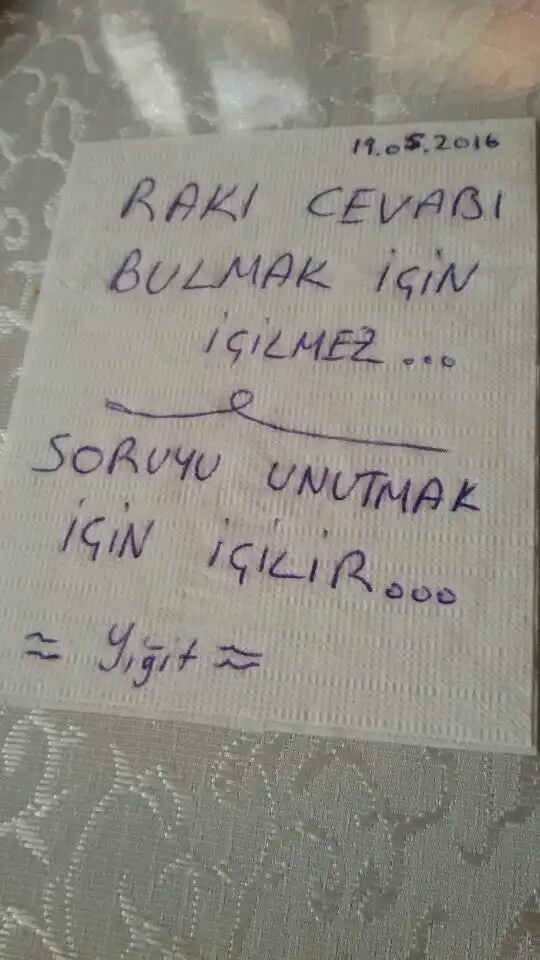 19.05.2016
RAKI CEVABI
BULMAK İÇİN
İÇİLMEZ...
SORUYU UNUTMAK
İÇİN İÇİLİR...
≈ Yiğit ≈